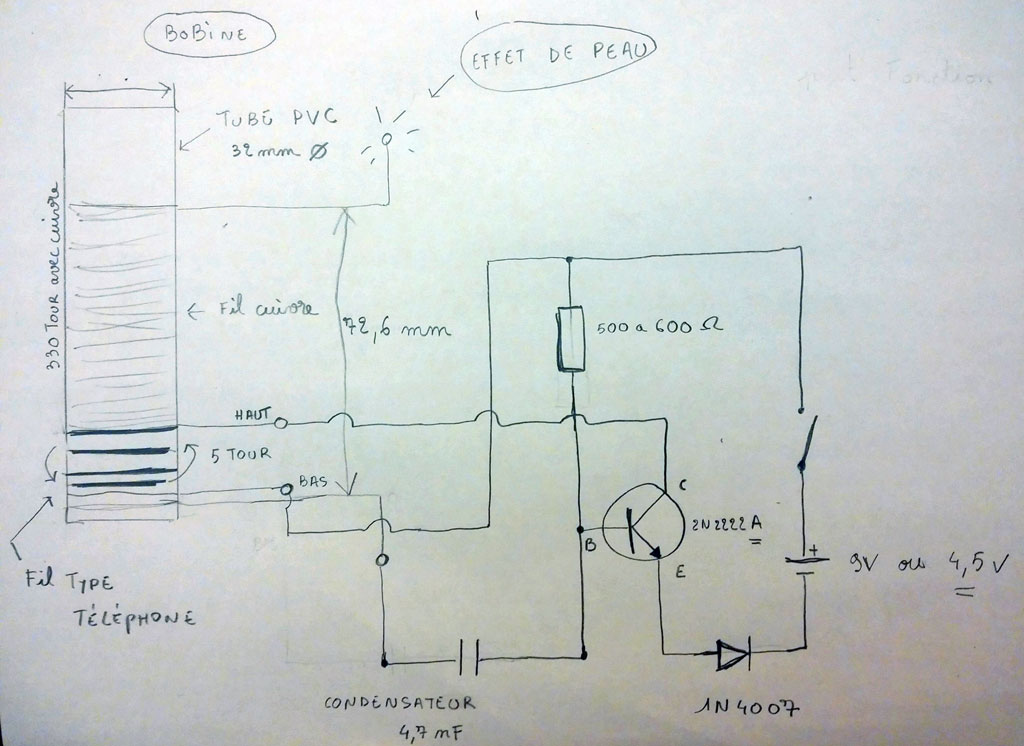 BOBINE
EFFET DE PEAU
TUBE PVC
32mm Ø
330 TOUR avec cuivre
Fil cuivre
72,6 mm
500 a 600 Ω
HAUT
5 TOUR
BAS
C
2N2222 A
B
E
+
9V ou 4,5 V
Fil TYPE
TÉLÉPHONE
CONDENSATEUR
4,7 mF
1N4007